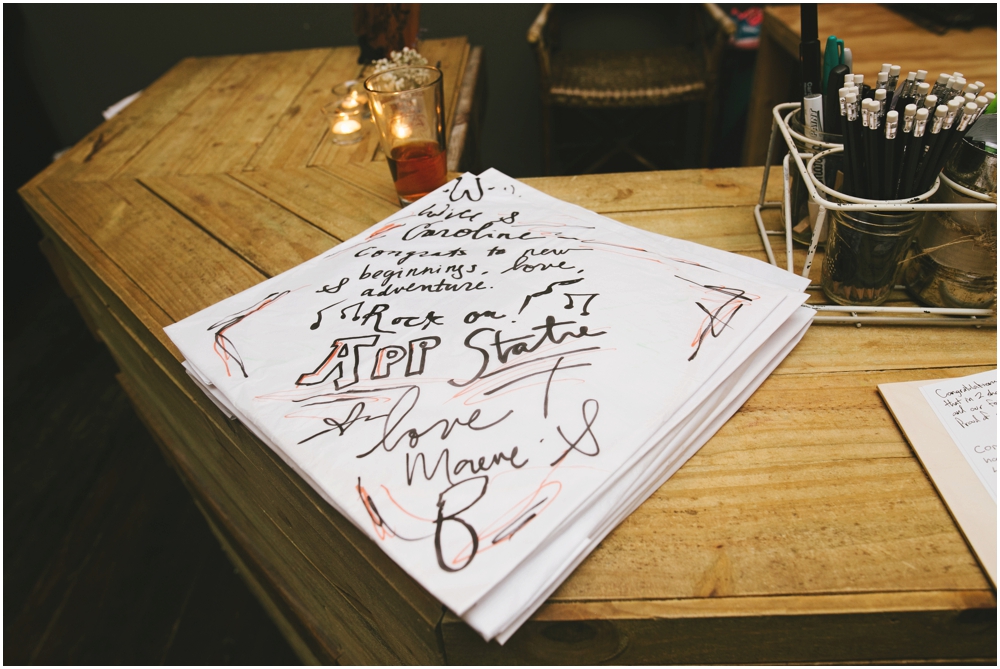 W
Will &
Caroline
Congrats to new
beginnings, love,
& adventure.
Rock on!
APP State
love
&
B
Congratulations
that in 2
and our
Proud of